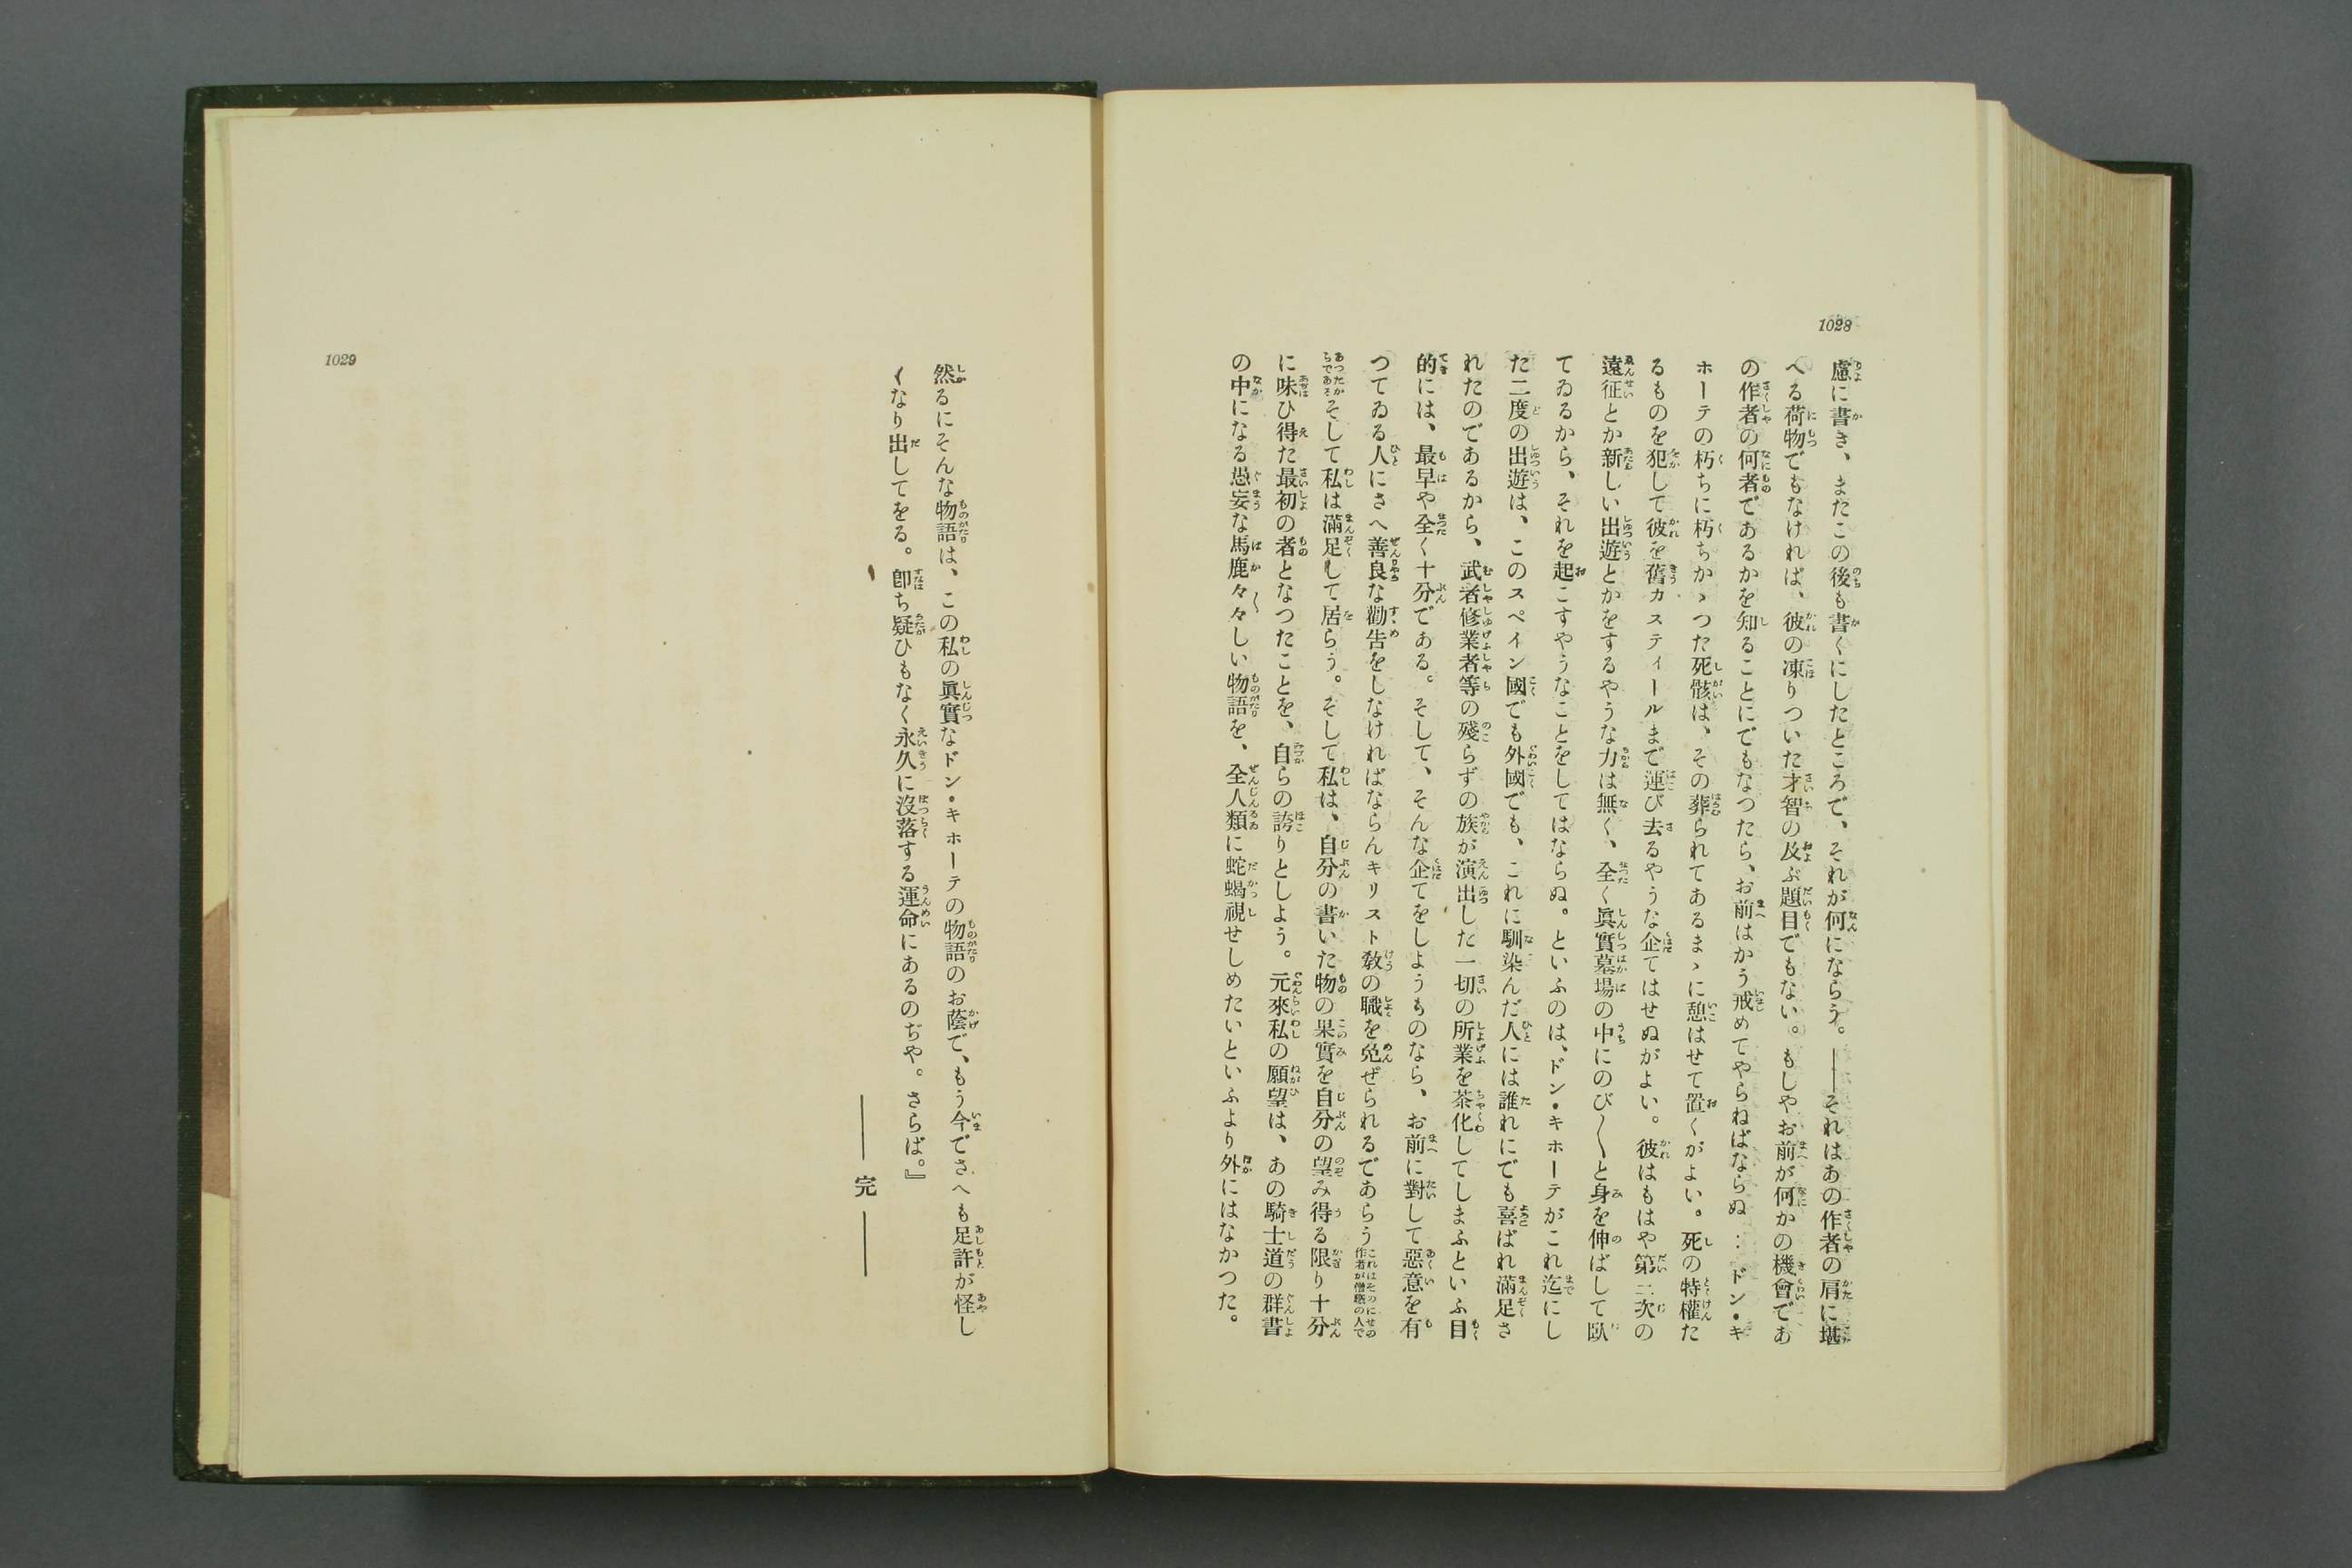 1028
慮に書き、またこの後も書くにしたところで、それが何にならう。――それはあの作者の肩に堪
へる荷物でもなければ、彼の凍りついた才智の及ぶ題目でもない。もしやお前が何かの機會であ
の作者の何者であるかを知ることにでもなつたら、お前はかう戒めてやらねばならぬ…ドン・キ
ホーテの朽ちに朽ちかゝつた死骸は、その葬られてあるまゝに憩はせて置くがよい。死の特權た
るものを犯して彼を舊カスティールまで運び去るやうな企てはせぬがよい。彼はもはや第三次の
遠征とか新しい出遊とかをするやうな力は無く、全く眞實墓場の中にのび〳〵と身を伸ばして臥
てゐるから、それを起こすやうなことをしてはならぬ。といふのは、ドン・キホーテがこれ迄にし
た二度の出遊は、このスペイン國でも外國でも、これに馴染んだ人には誰れにでも喜ばれ滿足さ
れたのであるから、武者修業者等の殘らずの族が演出した一切の所業を茶化してしまふといふ目
的には、最早や全く十分である。そして、そんな企てをしようものなら、お前に對して惡意を有
つてゐる人にさへ善良な勸告をしなければならんキリスト敎の職を免ぜられるであらう これはそのにせの作者が僧職の人で
あつたからであるそして私は滿足して居らう。そして私は、自分の書いた物の果實を自分の望み得る限り十分
に味ひ得た最初の者となつたことを、自らの誇りとしよう。元來私の願望は、あの騎士道の群書
の中になる愚妄な馬鹿々々〳〵しい物語を、全人類に蛇蝎視せしめたいといふより外にはなかつた。
1029
然るにそんな物語は、この私の眞實なドン・キホーテの物語のお蔭で、もう今でさへも足許が怪し
くなり出してをる。卽ち疑ひもなく永久に沒落する運命にあるのぢや。さらば。』
――完――